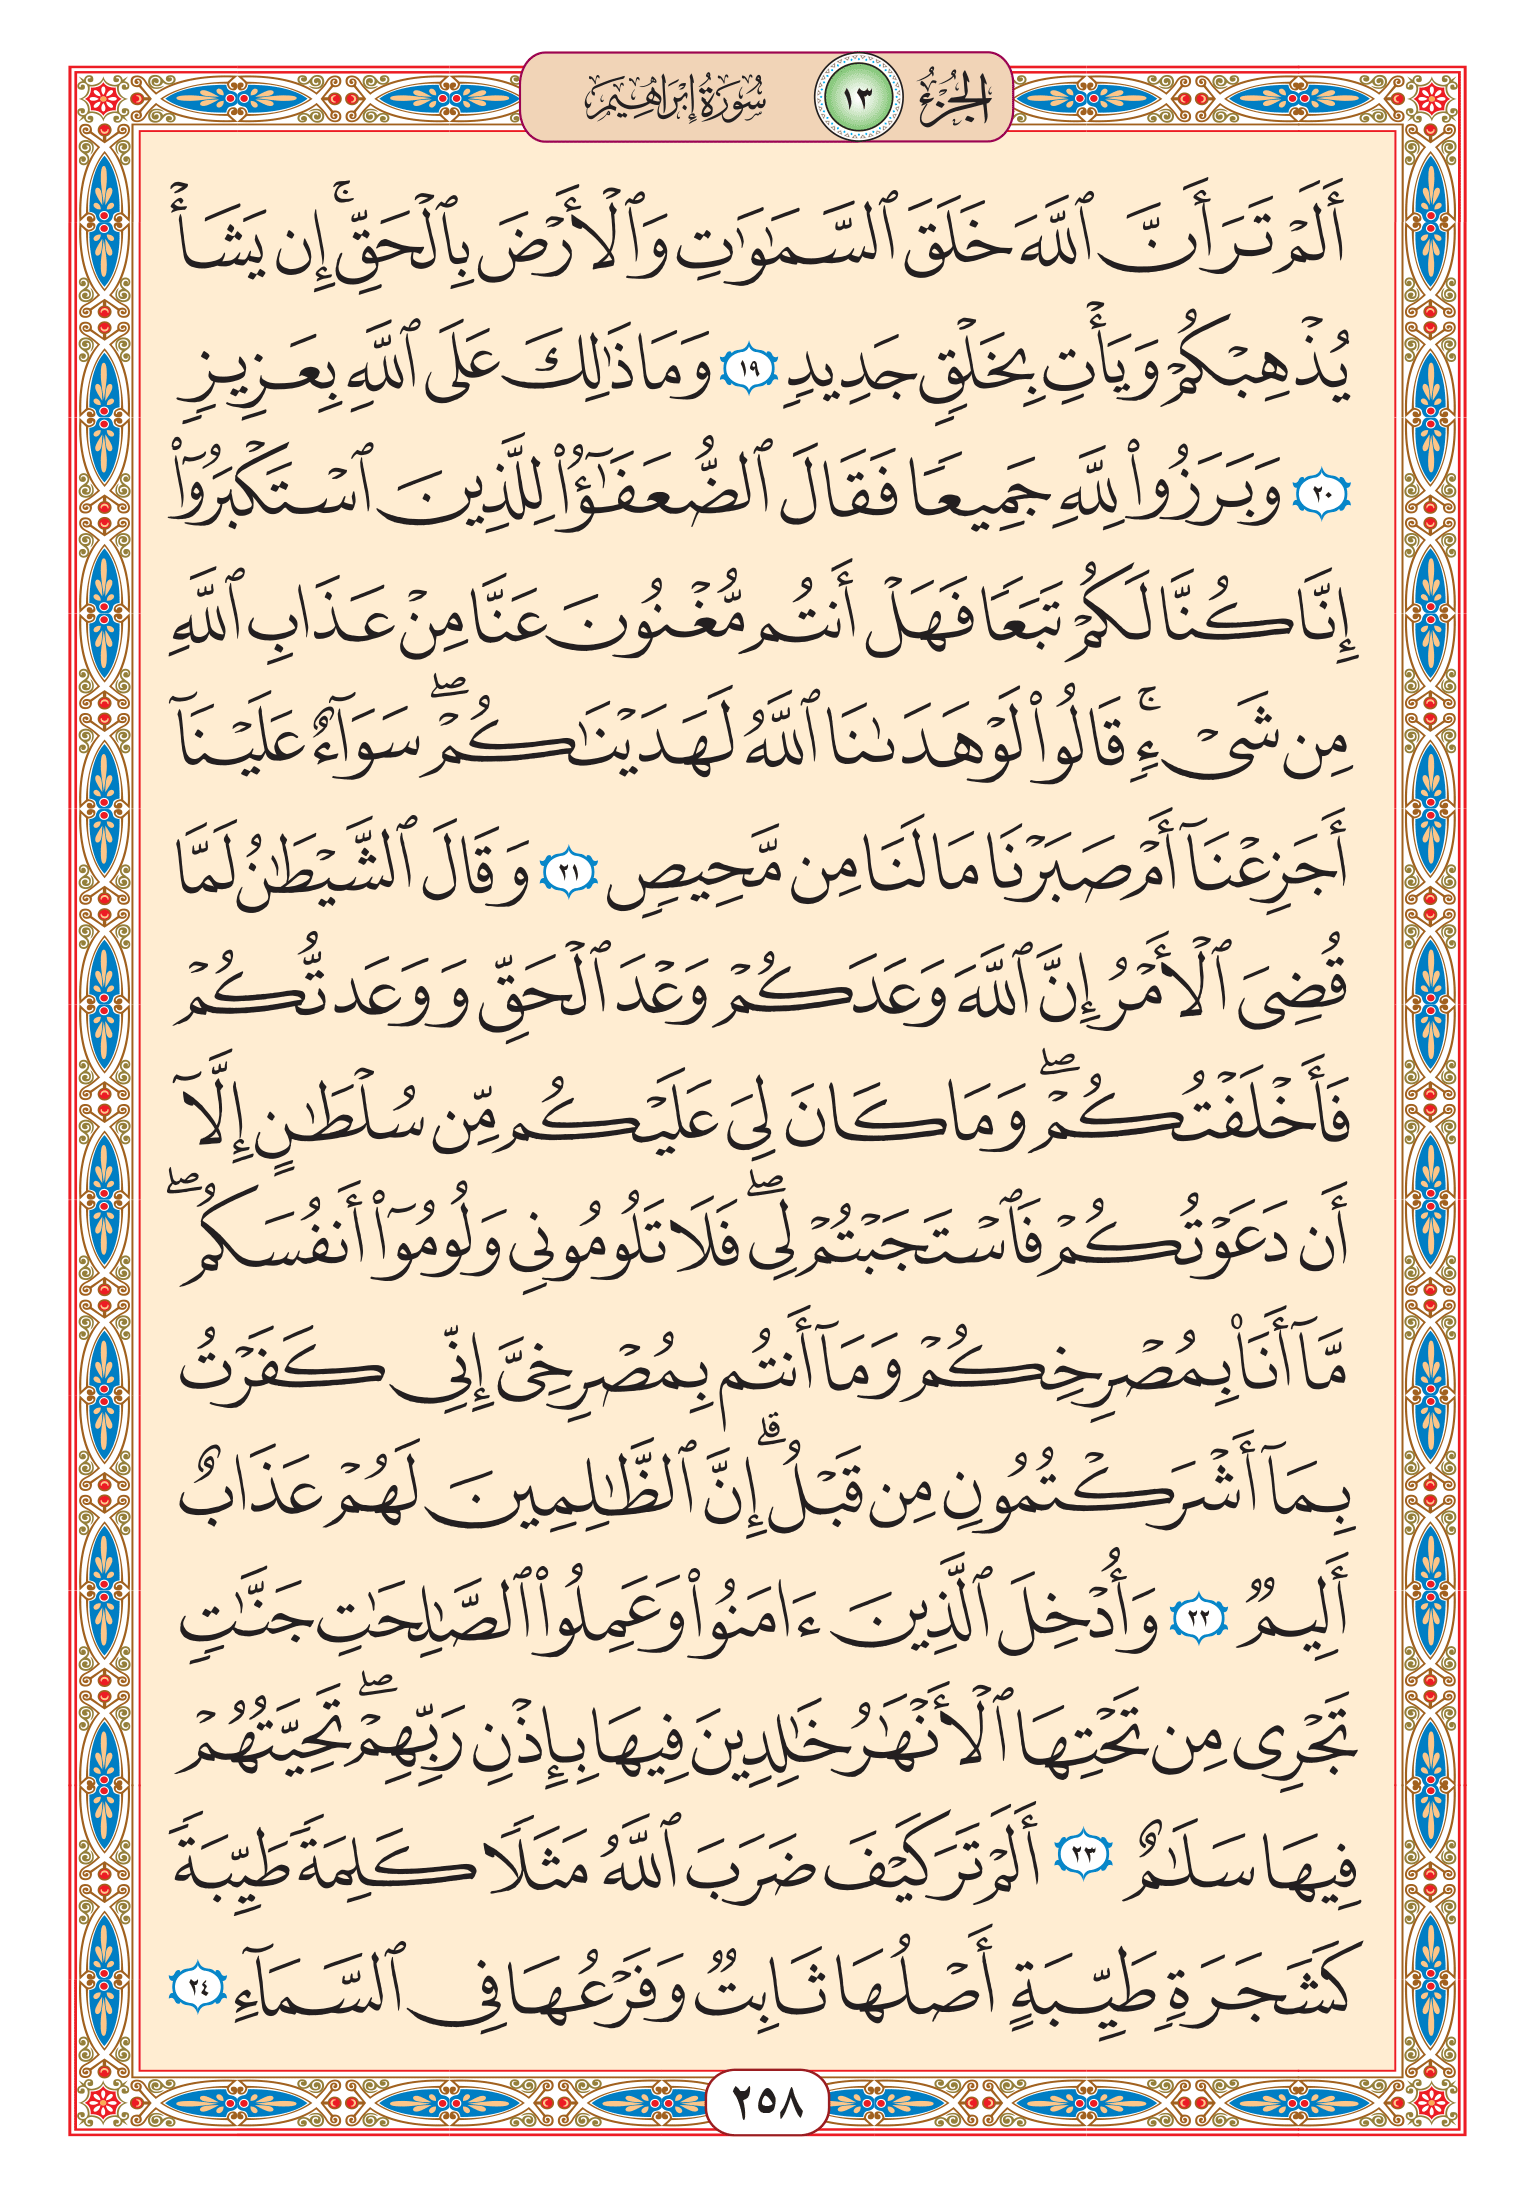 الجزء ١٣ سورة إبراهيم
أَلَمْ تَرَ أَنَّ ٱللَّهَ خَلَقَ ٱلسَّمَٰوَٰتِ وَٱلْأَرْضَ بِٱلْحَقِّ ۚ إِن يَشَأْ
يُذْهِبْكُمْ وَيَأْتِ بِخَلْقٍ جَدِيدٍ ١٩ وَمَا ذَٰلِكَ عَلَى ٱللَّهِ بِعَزِيزٍ
٢٠ وَبَرَزُوا۟ لِلَّهِ جَمِيعًا فَقَالَ ٱلضُّعَفَٰٓؤُا۟ لِلَّذِينَ ٱسْتَكْبَرُوٓا۟
إِنَّا كُنَّا لَكُمْ تَبَعًا فَهَلْ أَنتُم مُّغْنُونَ عَنَّا مِنْ عَذَابِ ٱللَّهِ
مِن شَىْءٍ ۚ قَالُوا۟ لَوْ هَدَىٰنَا ٱللَّهُ لَهَدَيْنَٰكُمْ ۖ سَوَآءٌ عَلَيْنَآ
أَجَزِعْنَآ أَمْ صَبَرْنَا مَا لَنَا مِن مَّحِيصٍ ٢١ وَقَالَ ٱلشَّيْطَٰنُ لَمَّا
قُضِىَ ٱلْأَمْرُ إِنَّ ٱللَّهَ وَعَدَكُمْ وَعْدَ ٱلْحَقِّ وَوَعَدتُّكُمْ
فَأَخْلَفْتُكُمْ ۖ وَمَا كَانَ لِىَ عَلَيْكُم مِّن سُلْطَٰنٍ إِلَّآ
أَن دَعَوْتُكُمْ فَٱسْتَجَبْتُمْ لِى ۖ فَلَا تَلُومُونِى وَلُومُوٓا۟ أَنفُسَكُم ۖ
مَّآ أَنَا۠ بِمُصْرِخِكُمْ وَمَآ أَنتُم بِمُصْرِخِىَّ إِنِّى كَفَرْتُ
بِمَآ أَشْرَكْتُمُونِ مِن قَبْلُ ۗ إِنَّ ٱلظَّٰلِمِينَ لَهُمْ عَذَابٌ
أَلِيمٌ ٢٢ وَأُدْخِلَ ٱلَّذِينَ ءَامَنُوا۟ وَعَمِلُوا۟ ٱلصَّٰلِحَٰتِ جَنَّٰتٍ
تَجْرِى مِن تَحْتِهَا ٱلْأَنْهَٰرُ خَٰلِدِينَ فِيهَا بِإِذْنِ رَبِّهِمْ ۖ تَحِيَّتُهُمْ
فِيهَا سَلَٰمٌ ٢٣ أَلَمْ تَرَ كَيْفَ ضَرَبَ ٱللَّهُ مَثَلًا كَلِمَةً طَيِّبَةً
كَشَجَرَةٍ طَيِّبَةٍ أَصْلُهَا ثَابِتٌ وَفَرْعُهَا فِى ٱلسَّمَآءِ ٢٤
٢٥٨